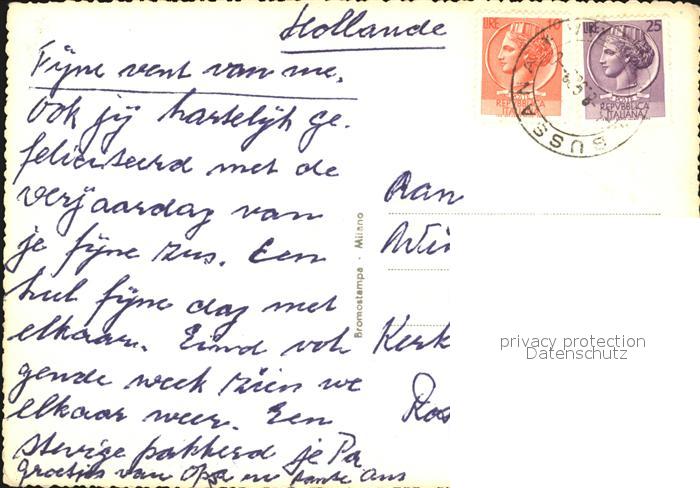 Hollande
LIRE 10
LIRE 25
POSTE
REPVBBLICA
ITALIANA
POSTE
REPVBBLICA
ITALIANA
BUSSANA
Fijne vent van me,
Ook jij hartelijk ge-
feliciteerd met de
verjaardag van
je fijne zus. Een
heel fijne dag met
elkaar. Eind vol-
gende week zien we
elkaar weer. Een
stevige pakkerd je Pa
groetjes van Opa en tante Ans
Bromostampa - Milano
Aan
Kerk
Ros
privacy protection
Datenschutz